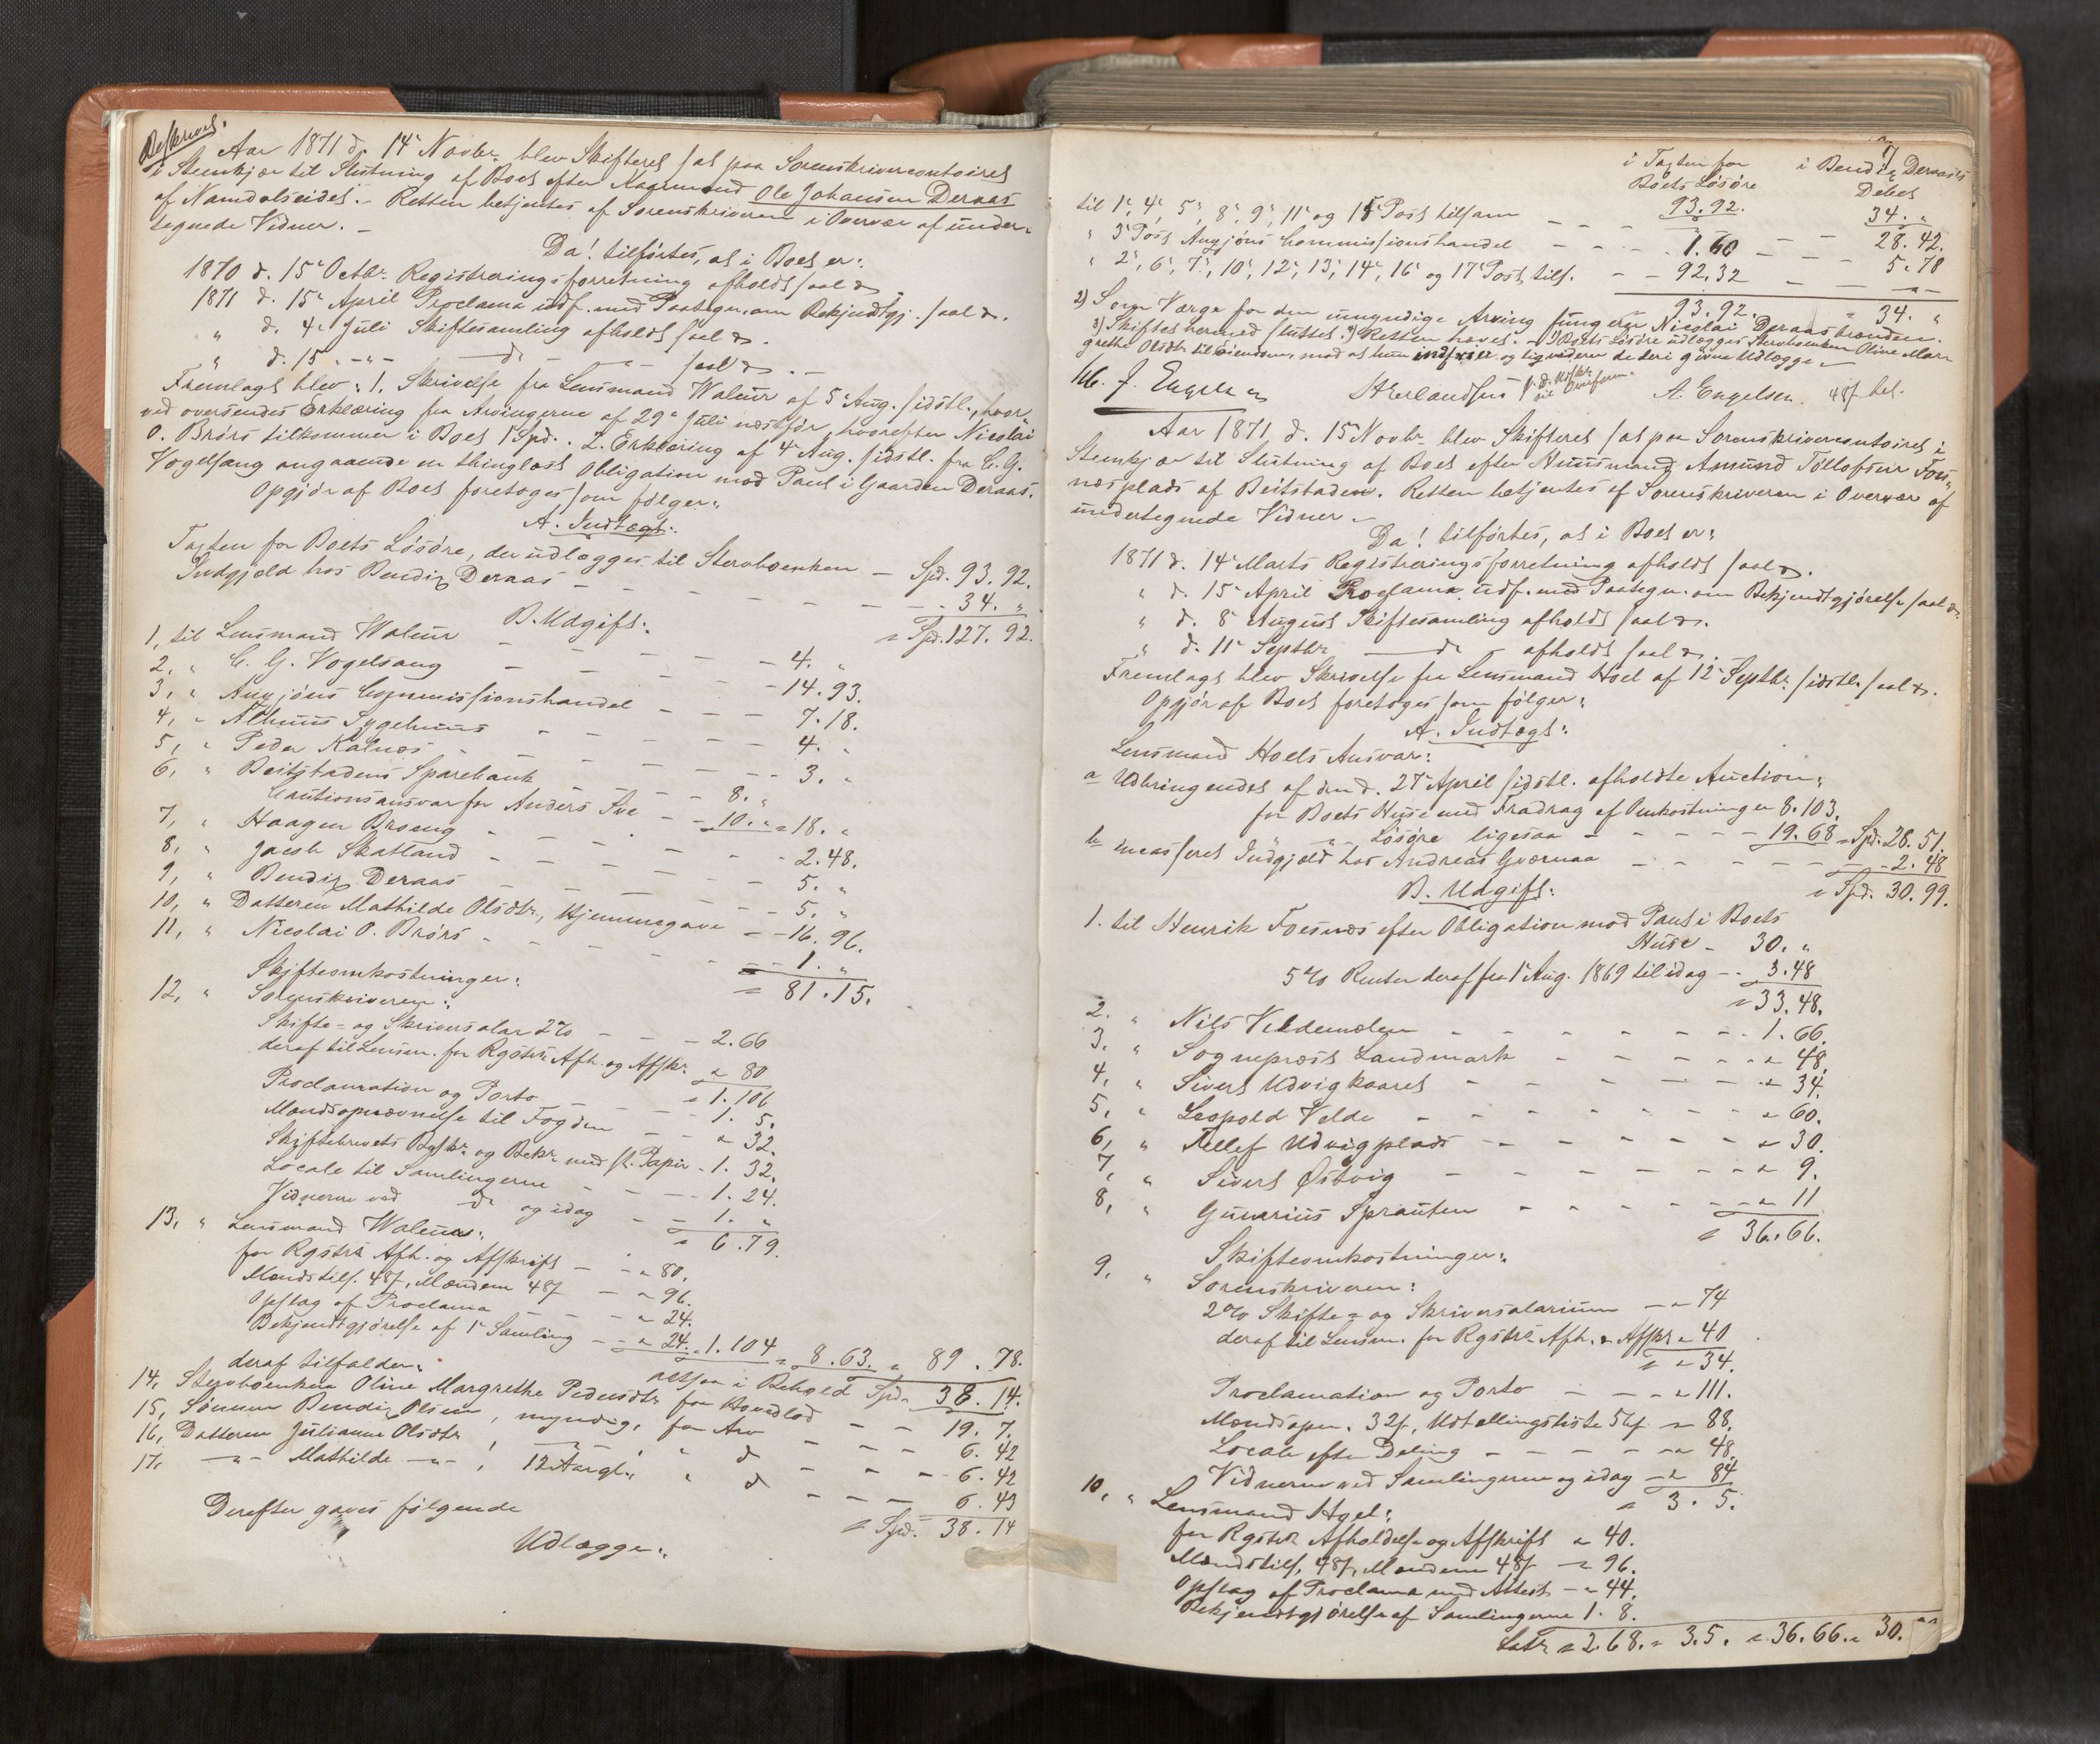 Beskrevet.
Aar 1871 d. 14de Novbr. blev Skifteret sat paa Sorenskrivercontoiret
i Stenkjær til Slutning af Boet efter Kaarmand Ole Johansen Deraas
af Namdalseidet. – Retten betjentes af Sorenskriveren i Overvær af under-
tegnede Vidner. –
Da! tilførtes, at i Boet er:
1870 d. 15de Octbr. Registreringsforretning afholdt saal.
1871 d. 15de April Proclama udf. med Paategn. om Bekjendtgj. saal.
" d. 4de Juli Skiftesamling afholdt saal.
" d. 15 -"- do -"- saal. –
Fremlagt blev: 1. Skrivelse fra Lensmand Waleur af 5te Aug. sidstl., hvor-
ved oversendes Erklæring fra Arvingerne af 29de Juli næstfør, hvorefter Nicolai
O. Brørs tilkommer i Boet 1 Spd. 2. Erklæring af 4de Aug. sidstl. fra C. G.
Vogelsang angaaende en thinglæst Obligation mod Pant i Gaarden Deraas.
Opgjør af Boet foretoges som følger:
A. Indtægt:
Taxten for Boets Løsøre, der udlægges til Stervboenken – Spd. 93. 92.
Indgjeld hos Bendix Deraas – – – – 34. "
= Spd. 127. 92.
B. Udgift:
1, til Lensmand Waleur – – – 4. "
2, " C. G. Vogelsang – – – 14. 93.
3, " Angjøns Commissionshandel – – – 7. 18.
4, " Sygehuus – – – 4. "
5, " Peder Kalnæs – – – 3. "
6, " Beitstadens Sparebank – – 8. "
Cautionsansvar for Anders – 10. " = 18. "
7, " Haagen Brørs – – – 2. 48.
8, " Jacob Skatland – – – 5. "
9, " Bendix Deraas – – – 5. "
10, " Datteren Mathilde Olsdtr., Hjemmegave – – 16. 96.
11, " Nicolai O. Brørs – – – 1. "
= 81. 15.
Skifteomkostninger:
12, " Sorenskriveren:
Skifte- og Skriversalar 2% – – – 2. 66
deraf til Lensm. for Rgstrs Afh. og Afskr. " 80
= 1. 106
Proclamation og Porto – – – 1. 5.
Mandsopnævnelse til Fogden – – " 32.
Skiftebrevets Beskr. og Bekr. med st. Papir – 1. 32.
Locale til Samlingerne – – – 1. 24.
Vidnerne ved do og idag – – 1. "
= 6. 79.
13, " Lensmand Waleur:
for Rgstrs Afh. og Afskrift – – " 80.
Mandstils. 48 s, Mændene 48 s – " 96.
Opslag af Proclama – – " 24.
Bekjendtgjørelse af 1ste Samling – – " 24. = 1. 104 = 8. 63. = 89. 78.
altsaa i Behold Spd. 38. 14.
deraf tilfalder:
14, Stervboenken Oline Margrethe Pedersdtr. for Hovedlod – – 19. 7.
15, Sønnen Bendix Olsen, myndig, for Arv – – – 6. 42
16, Datteren Julianne Olsdtr. " do – – – 6. 42
17, -"- Mathilde -"-, 12 Aar gl., " do – – – 6. 43
= Spd. 38. 14
Derefter gaves følgende
Udlægge:
i Taxten for i Bendix Deraas's
Boets Løsøre Debet
til 1ste, 4de, 5te, 8de, 9de, 11te og 15de Post tilsam – – 93. 92. 34. "
" 3die Post Angjøns Commissionshandel – – – 1. 60 – – 28. 42.
" 2den, 6te, 7de, 10de, 12te, 13de, 14de, 16de og 17de Post tils. – – 92. 32 – – 5. 78
93. 92. " 34. "
2) Som Værge for den umyndige Arving fungerer Nicolai Deraasbrænden.
3) Skiftet hermed sluttet. 4) Retten hævet. – 1) Boets Løsøre udlægges Stervboenken Oline Mar-
grethe Olsdtr. til Eiendom mod at hun indfrier og liqviderer de deri givne Udlægge. –
A. Engelsen. 48 s bet.
Aar 1871, d. 15de Novbr. blev Skifteret sat paa Sorenskrivercontoiret i
Stenkjær til Slutning af Boet efter Huusmand Amund Tollefsen Fos-
næsplads af Beitstaden. Retten betjentes af Sorenskriveren i Overvær af
undertegnede Vidner. –
Da! tilførtes, at i Boet er:
1871 d. 14de Marts Registreringsforretning afholdt saal.
" d. 15de April Proclama udf. med Paategn. om Bekjendtgjørelse saal.
" d. 8de August Skiftesamling afholdt saal.
" d. 11te Septbr. do – afholdt saal.
Fremlagt blev Skrivelse fra Lensmand Hoel af 12te Septbr. sidstl. saal.
Opgjør af Boet foretoges som følger:
A. Indtægt:
Lensmand Hoels Ansvar:
a Udbringendet af den d. 27de April sidstl. afholdte Auction:
for Boets Huse med Fradrag af Omkostninger 8. 103.
" " Løsøre ligesaa – – – – 19. 68 = Spd. 28. 51.
b incasseret Indgjeld hos Andreas Gværnaa – – – – 2. 48
= Spd. 30. 99.
B. Udgift:
1. til Henrik Fosnæs efter Obligation mod Pant i Boets
Huse – 30. "
5% Renter deraf fra 1ste Aug. 1869 til idag – . 3. 48
= 33. 48.
2. " Nils Veldemelen – – – – 1. 66.
3. " Sogneprest Landmark – – – " 48.
4, " Sivert Udvigkaaret – – – " 34.
5, " Leopold Velde – – – – " 60.
6, " Tellef Udvigplads – – – " 30.
7, " Sivert Østvig – – – – " 9.
8, " Gunerius Sprauten – – – " 11
= 36. 66.
Skifteomkostninger:
9, " Sorenskriveren:
2% Skifte- og Skriversalarium – " 74
deraf til Lensm. for Rgstrs Afh. & Afskr. " 40
= " 34.
Proclamation og Porto – – – " 111.
Mandsopn. 32 s, Udtællingsliste 56 s = 88.
Locale efter Deling – – – – " 48.
Vidnerne ved Samlingerne og idag – " 84
= 3. 5.
10, " Lensmand Hoel:
for Rgstrs Afholdelse og Afskrift " 40.
Mandstils. 48 s, Mændene 48 s – " 96.
Opslag af Proclama med Attest – " 44.
Bekjendtgjørelse af Samlingerne 1. 8.
Latr. = 2. 68. = 3. 5. = 36. 66. = 30.